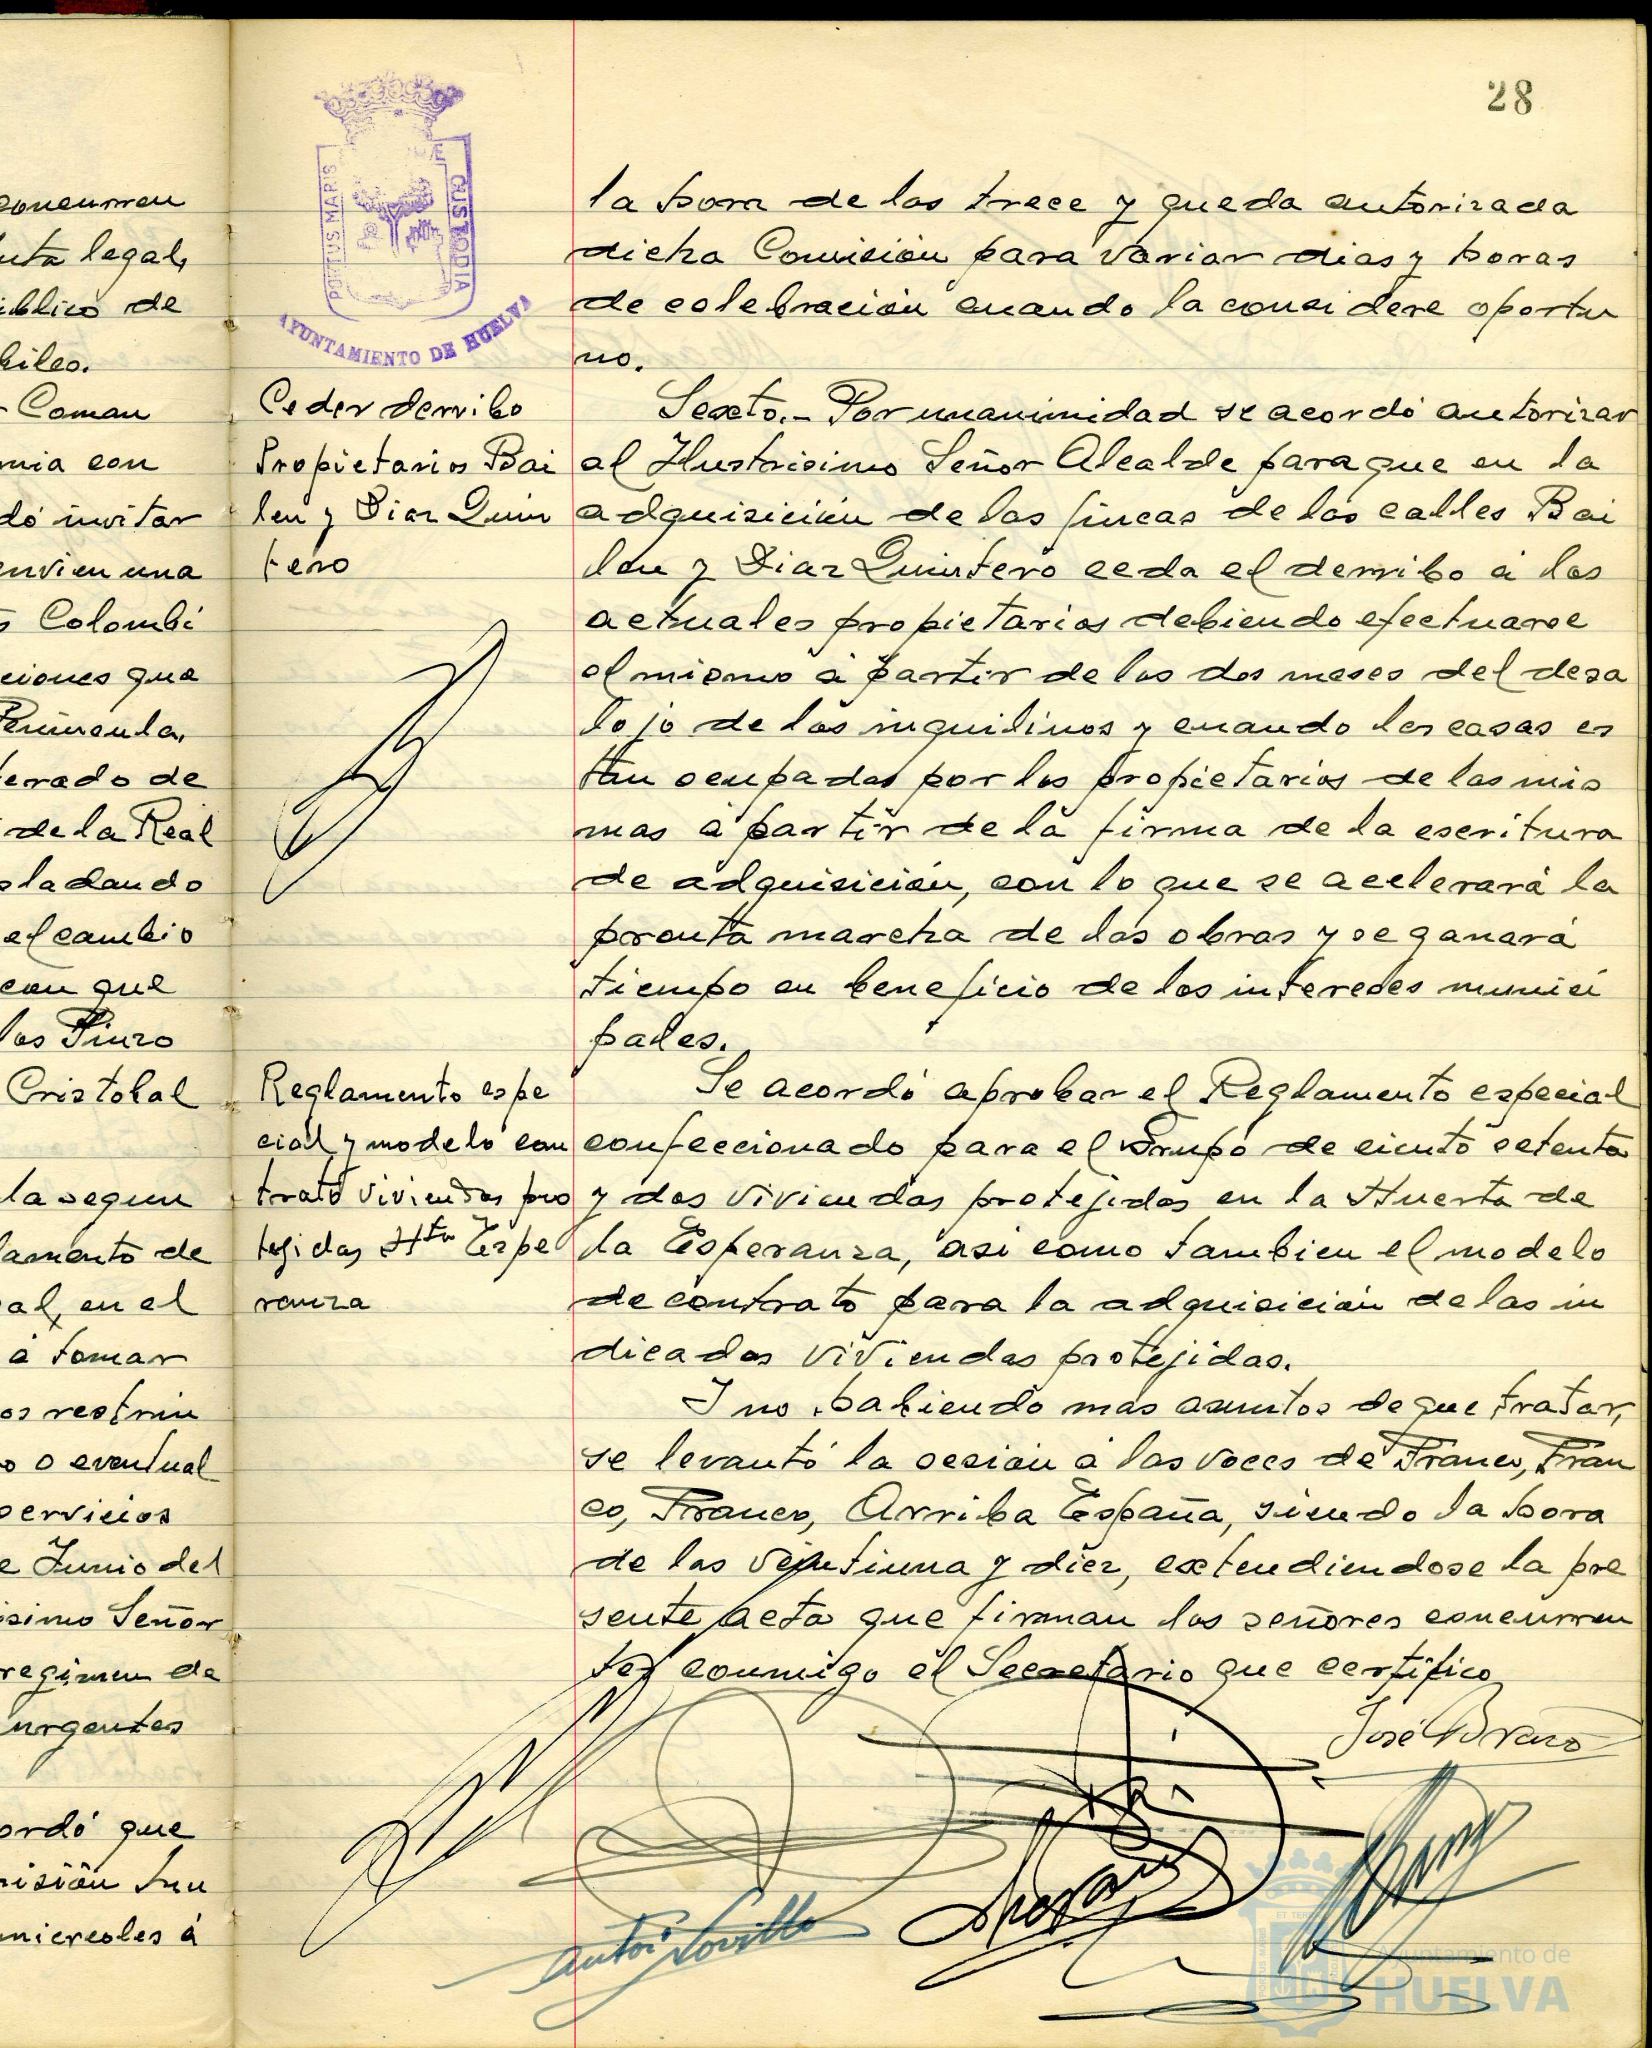 concurren
legal,
público de
- Coman
con
dó invitar
envien una
Colombi
ciones que
Peninsula,
terado de
de la Real
sladando
el cambio
con que
los Pinzo
Cristobal
la segun
lamento de
al, en el
á tomar
os restrin
o o eventual
servicios
e Junio del
isimo Señor
regimen de
urgentes
ordó que
misión
miercoles á
PORTUS MARIS
CUSTODIA
AYUNTAMIENTO DE HUELVA
Ceder derribo
Propietarios Bai
len y Diaz Quin
tero
Reglamento espe
cial y modelo con
trato viviendas pro
tejidas Hta Espe
ranza
28
la hora de las trece y queda autorizada
dicha Comisión para variar dias y horas
de celebración cuando la considere oportu
no.
Sexto.- Por unanimidad se acordó autorizar
al Ilustrisimo Señor Alcalde para que en la
adquisición de las fincas de las calles Bai
len y Diaz Quintero ceda el derribo á los
actuales propietarios debiendo efectuarse
el mismo á partir de los dos meses del desa
lojo de los inquilinos y cuando las casas es
tan ocupadas por los propietarios de las mis
mas á partir de la firma de la escritura
de adquisición, con lo que se acelerará la
pronta marcha de las obras y se ganará
tiempo en beneficio de los intereses munici
pales.
Se acordó aprobar el Reglamento especial
confeccionado para el Grupo de ciento setenta
y dos viviendas protejidas en la Huerta de
la Esperanza, asi como tambien el modelo
de contrato para la adquisición de las in
dicadas viviendas protejidas.
Y no habiendo mas asuntos de que tratar,
se levantó la sesión á las voces de Franco, Fran
co, Franco, Arriba España, siendo la hora
de las veintiuna y diez, extendiendose la pre
sente acta que firman los señores concurren
tes conmigo el Secretario que certifico
José Brazo
Ayuntamiento de
HUELVA